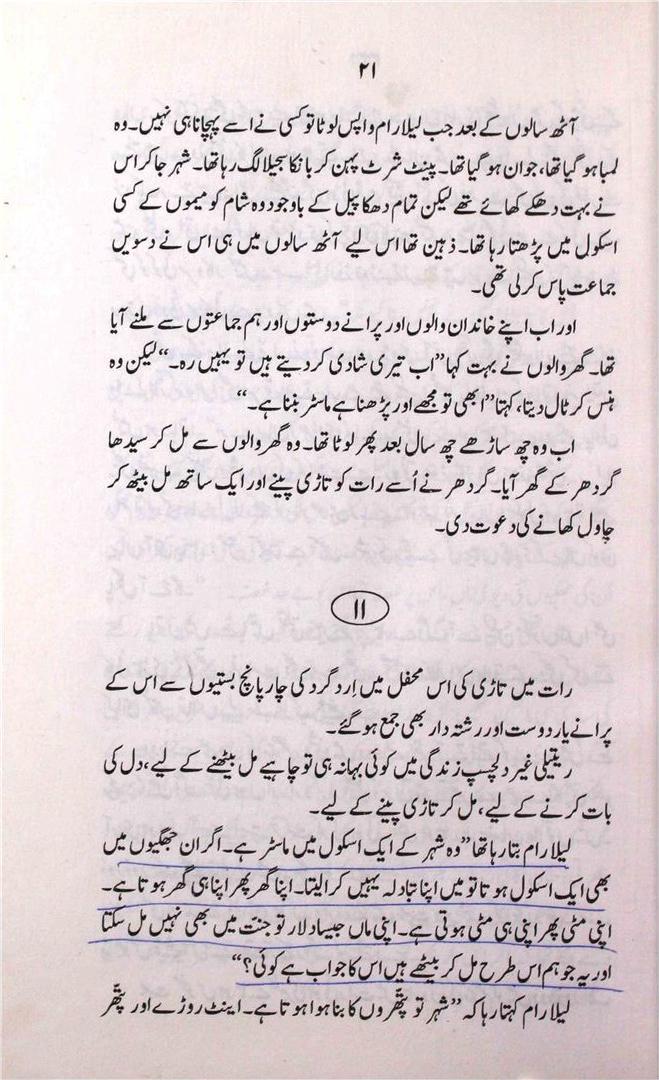 ۲۱
آٹھ سالوں کے بعد جب لیلا رام واپس لوٹا تو کسی نے اسے پہچانا ہی نہیں۔ وہ
لمبا ہو گیا تھا، جوان ہو گیا تھا۔ پینٹ شرٹ پہن کر بانکا سجیلا لگ رہا تھا۔ شہر جا کر اس
نے بہت دھکے کھائے تھے لیکن تمام دھکا پیل کے باوجود وہ شام کو میموں کے کسی
اسکول میں پڑھتا رہا تھا۔ ذہین تھا اس لیے آٹھ سالوں میں ہی اس نے دسویں
جماعت پاس کر لی تھی۔
اور اب اپنے خاندان والوں اور پرانے دوستوں اور ہم جماعتوں سے ملنے آیا
تھا۔ گھر والوں نے بہت کہا ”اب تیری شادی کر دیتے ہیں تو یہیں رہ۔“ لیکن وہ
ہنس کر ٹال دیتا، کہتا ”ابھی تو مجھے اور پڑھنا ہے ماسٹر بننا ہے۔“
اب وہ چھ ساڑھے چھ سال بعد پھر لوٹا تھا۔ وہ گھر والوں سے مل کر سیدھا
گردھر کے گھر آیا۔ گردھر نے اُسے رات کو تاڑی پینے اور ایک ساتھ مل بیٹھ کر
چاول کھانے کی دعوت دی۔
۱۱
رات میں تاڑی کی اس محفل میں اِرد گرد کی چار پانچ بستیوں سے اس کے
پرانے یار دوست اور رشتہ دار بھی جمع ہو گئے۔
ریتیلی غیر دلچسپ زندگی میں کوئی بہانہ ہی تو چاہیے مل بیٹھنے کے لیے، دل کی
بات کرنے کے لیے، مل کر تاڑی پینے کے لیے۔
لیلا رام بتا رہا تھا ”وہ شہر کے ایک اسکول میں ماسٹر ہے۔ اگر ان جھگیوں میں
بھی ایک اسکول ہوتا تو میں اپنا تبادلہ یہیں کرا لیتا۔ اپنا گھر پھر اپنا ہی گھر ہوتا ہے۔
اپنی مٹی پھر اپنی ہی مٹی ہوتی ہے۔ اپنی ماں جیسا دلار تو جنت میں بھی نہیں مل سکتا
اور یہ جو ہم اس طرح مل کر بیٹھے ہیں اس کا جواب ہے کوئی؟“
لیلا رام کہتا رہا کہ ”شہر تو پتھّروں کا بنا ہوا ہوتا ہے۔ اینٹ روڑے اور پتھّر